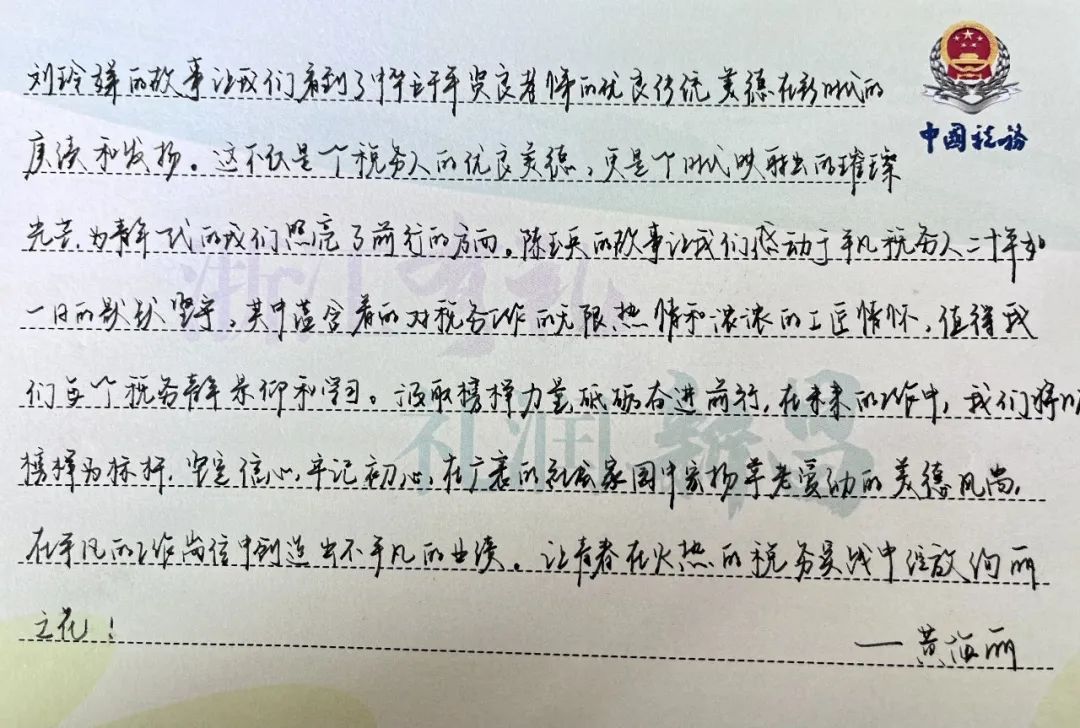 刘玲娣的故事让我们看到了中华五千年贤良孝悌的优良传统美德在新时代的
赓续和发扬。这不仅是个税务人的优良美德,更是个时代映射出的璀璨
光芒,为青年一代的我们照亮了前行的方向。陈玉英的故事让我们感动于平凡税务人二十年如
一日的默默坚守,其中蕴含着的对税务工作的无限热情和浓浓的工匠情怀,值得我
们每个税务青年景仰和学习。汲取榜样力量,砥砺奋进前行,在未来的工作中,我们将以
榜样为标杆,坚定信心,牢记初心,在广袤的社会家园中宣扬尊老爱幼的美德风尚,
在平凡的工作岗位中创造出不平凡的业绩。让青春在火热的税务实战中绽放绚丽
之花!
—黄海丽
中国税務
浙江有礼
礼润